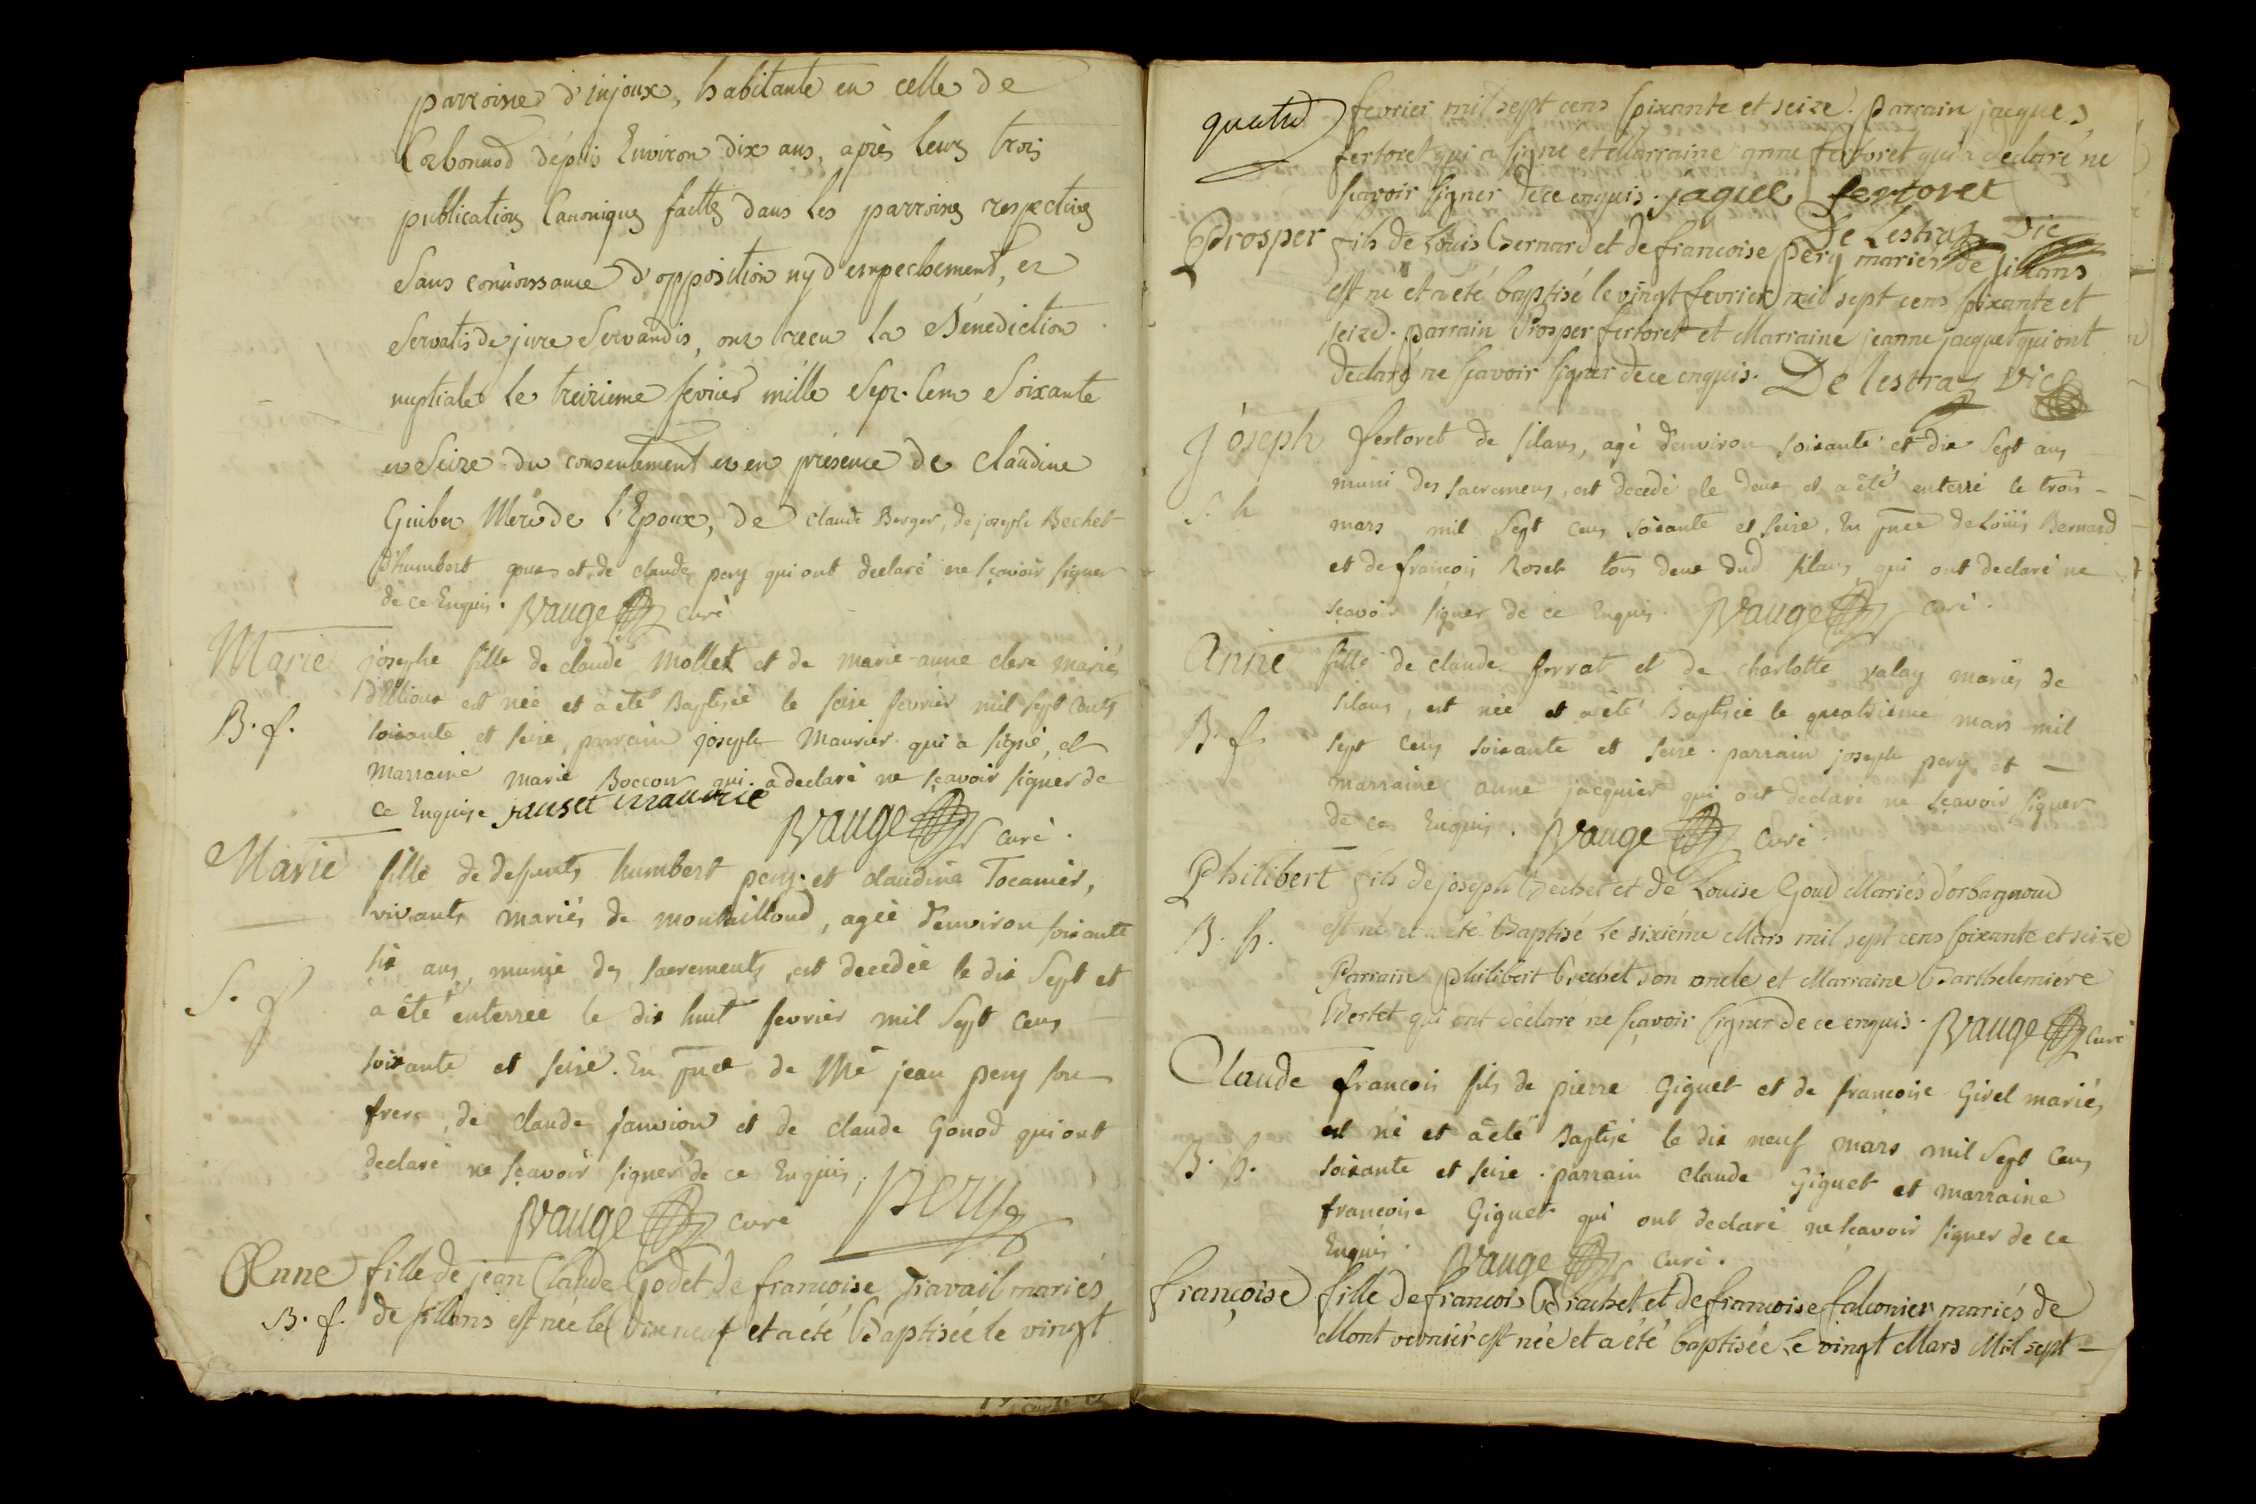 parroisse d'injoux, habitante en celle de
Corbonnod dépuis Environ dix ans, après leurs trois
publications Canoniques faittes dans les parroises respectives
Sans connoissance d'opposition ny d'empechement, et
Servatis de jure Servandis, ont reçu la Bénédiction
nuptiale le treizieme fevrier mille Sept. Cens Soixante
et Seize du consentement et en présence de Claudine
Mere de L'Epoux, de claude Berger, de joseph Bechet
d'humbert et de claude pery qui ont declaré ne sçavoir signer
de ce Enquis. Vauge curé
Marie josephe fille de claude Mollet et de marie-anne clerc mariés
est née et a été Baptisée le seize fevrier mil sept Cents
B. f.
soixante et seize, parrain joseph Maurier qui a signé, et
marraine marie Boccon qui a declaré ne sçavoir signer de
ce Enquise
Vauge curé.
Marie fille de defunts humbert pery et claudine Tocanier,
vivants mariés de montaillloud, agée d'environ soixante
six ans, munie des sacrements, est decedée le dix Sept et
S. f
a été enterrée le dix huit fevrier mil Sept Cens
soixante et seize. En pnce de Me jean pery son
frere, de claude janvion et de claude Gonod qui ont
declaré ne sçavoir signer de ce Enquis,
Vauge curé Pery
Anne fille de jean Claude Godet de francoise Travail mariés
B. f. de sillans est née le dix neuf et a été Baptisée le vingt
quatre fevrier mil sept cens soixante et seize. parrain jacques
fertoret qui a signé et Marraine anne fertoret qui a declaré ne
sçavoir signer de ce enquis. jaque fertoret
De Lestraz Vic
Prosper fils de Louis Bernard et de francoise pery mariés de silans
est né et a été baptisé le vingt fevrier mil sept cens soixante et
seize. parrain Prosper fertoret et Marraine jeanne jacquet qui ont
declaré ne sçavoir signer de ce enquis. De lestraz Vic
joseph fertoret de silans, agé d'environ soixante et dix Sept ans
muni des sacremens, est decedé le deux et a été enterré le trois
S. h
mars mil Sept Cens soixante et seize. En pnce de Loüis Bernard
et de françois Roset tous deux dud silans, qui ont declaré ne
sçavoir signer de ce Enquis. Vauge curé.
Anne fille de claude ferrat et de charlotte valay mariés de
silans, est née et a été Baptisée le quatrieme mars mil
B. f.
sept Cens soixante et seize. parrain joseph pery et
marraine anne jacquier qui ont declaré ne sçavoir signer
de ce Enquis. Vauge curé.
Philibert fils de joseph Bechet et de Louise Goud Mariés d'orbagnoud
B. h. est né et a été Baptisé le sixiéme Mars mil sept cens soixante et seize
Parrain philibert Bechet son oncle et Marraine Barthelemiere
Bertet qui ont declaré ne sçavoir signer de ce enquis. Vauge curé
Claude francois fils de pierre Giguet et de francoise Girel mariés
est né et a été Baptisé le dix neuf mars mil Sept Cens
B. h.
soixante et seize. parrain claude Giguet et marraine
francoise Giguet qui ont declaré ne sçavoir signer de ce
Enquis. Vauge curé.
françoise fille de francois Brachet et de francoise falconier mariés de
Mont vernier est née et a été baptisée Le vingt Mars Mil sept